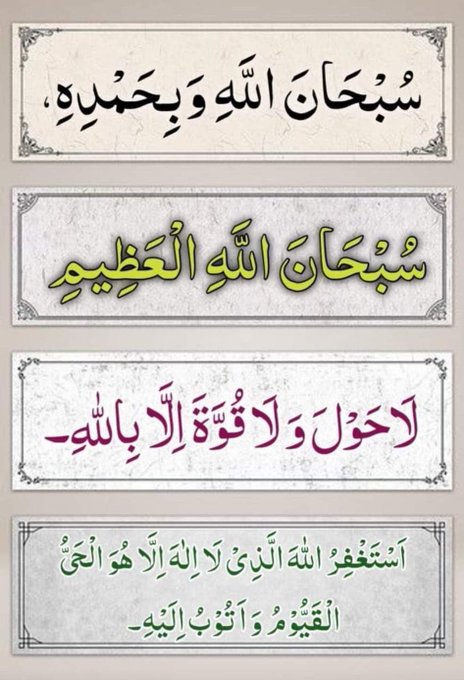 سُبْحَانَ اللَّهِ وَبِحَمْدِهِ،
سُبْحَانَ اللَّهِ الْعَظِيمِ
لَا حَوْلَ وَلَا قُوَّةَ اِلَّا بِاللّٰهِ۔
اَسْتَغْفِرُ اللّٰهَ الَّذِىْ لَا اِلٰهَ اِلَّا هُوَ الْحَىُّ
الْقَيُّوْمُ وَاَتُوْبُ اِلَيْهِ۔